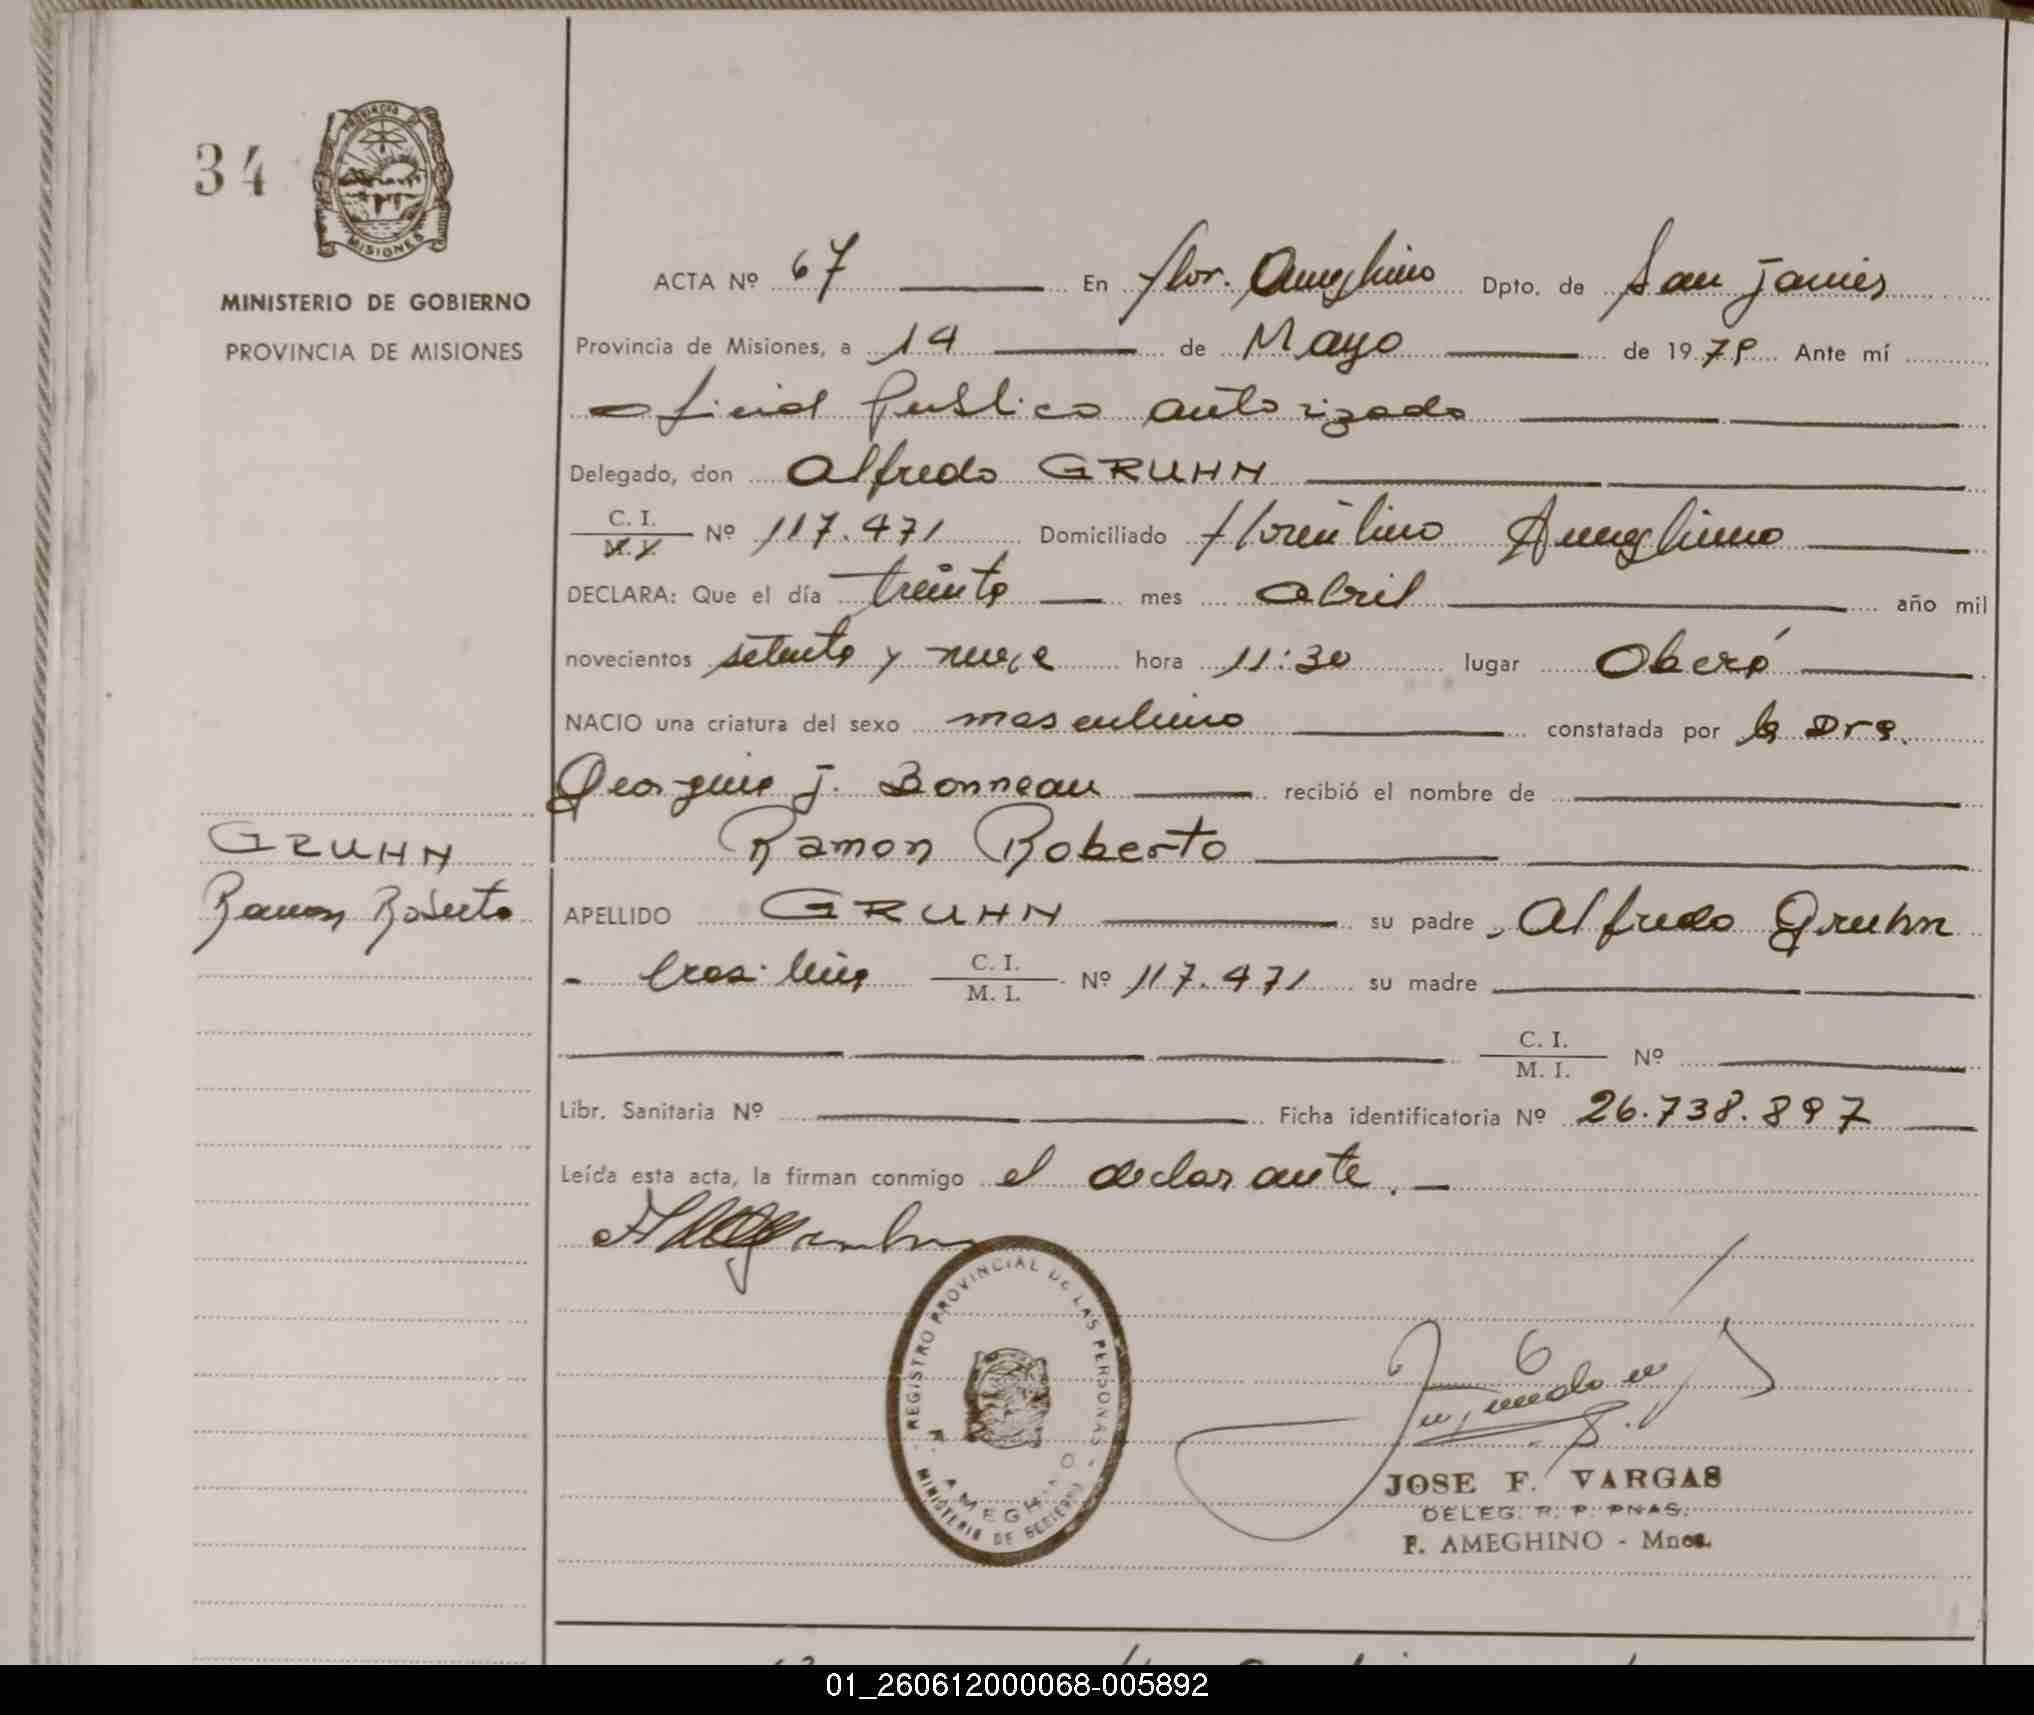 34
PROVINCIA DE
MISIONES
MINISTERIO DE GOBIERNO
PROVINCIA DE MISIONES
GRUHN
Ramon Roberto
ACTA Nº 67 En Flor. Ameghino Dpto. de San Javier
Provincia de Misiones, a 14 de Mayo de 1979 Ante mí
oficial Publico autorizado
Delegado, don Alfredo GRUHN
C. I. / M. I. Nº 117.471 Domiciliado Florentino Ameghino
DECLARA: Que el día treinta mes abril año mil
novecientos setenta y nueve hora 11:30 lugar Oberá
NACIO una criatura del sexo masculino constatada por la Dra.
Georgina J. Bonneau recibió el nombre de
Ramon Roberto
APELLIDO GRUHN su padre, Alfredo Gruhn
- brasileño C. I. / M. I. Nº 117.471 su madre
C. I. / M. I. Nº
Libr. Sanitaria Nº Ficha identificatoria Nº 26.738.897
Leída esta acta, la firman conmigo el declarante. -
REGISTRO PROVINCIAL DE LAS PERSONAS -
F. AMEGHINO
MINISTERIO DE GOBIERNO
JOSE F. VARGAS
DELEG. R. P. PNAS.
F. AMEGHINO - Mnes.
01_260612000068-005892